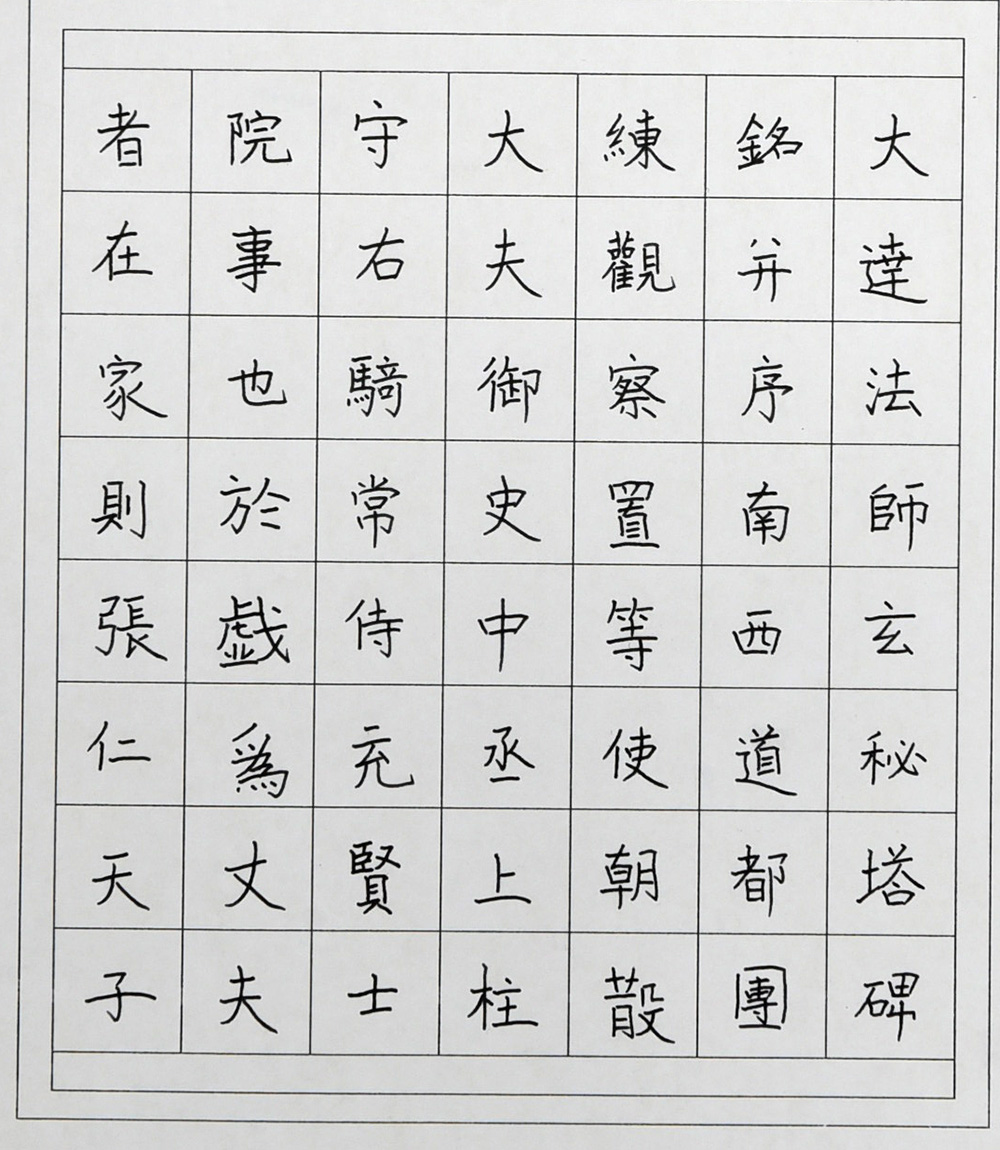 大達法師玄秘塔碑
銘并序南西道都團
練觀察置等使朝散
大夫御史中丞上柱
守右騎常侍充賢士
院事也於戲為丈夫
者在家則張仁天子